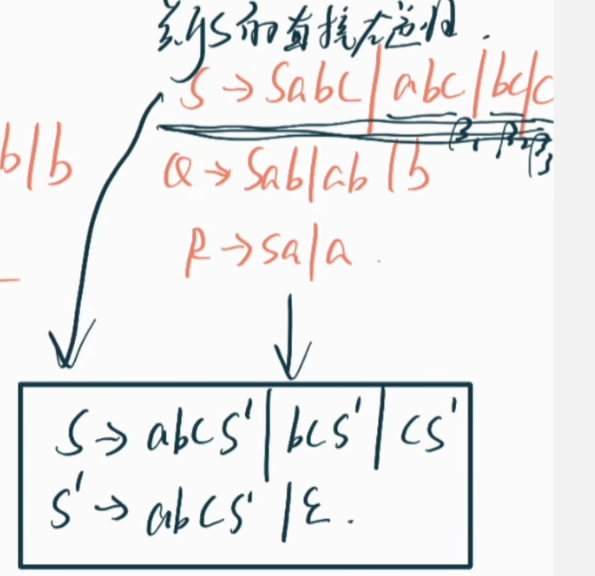 S的直接左递归.
S → Sabc | abc | bc | c
β₁ β₂ β₃
b | b
Q → Sab | ab | b
R → Sa | a .
S → abcS' | bcS' | cS'
S' → abcS' | ε .